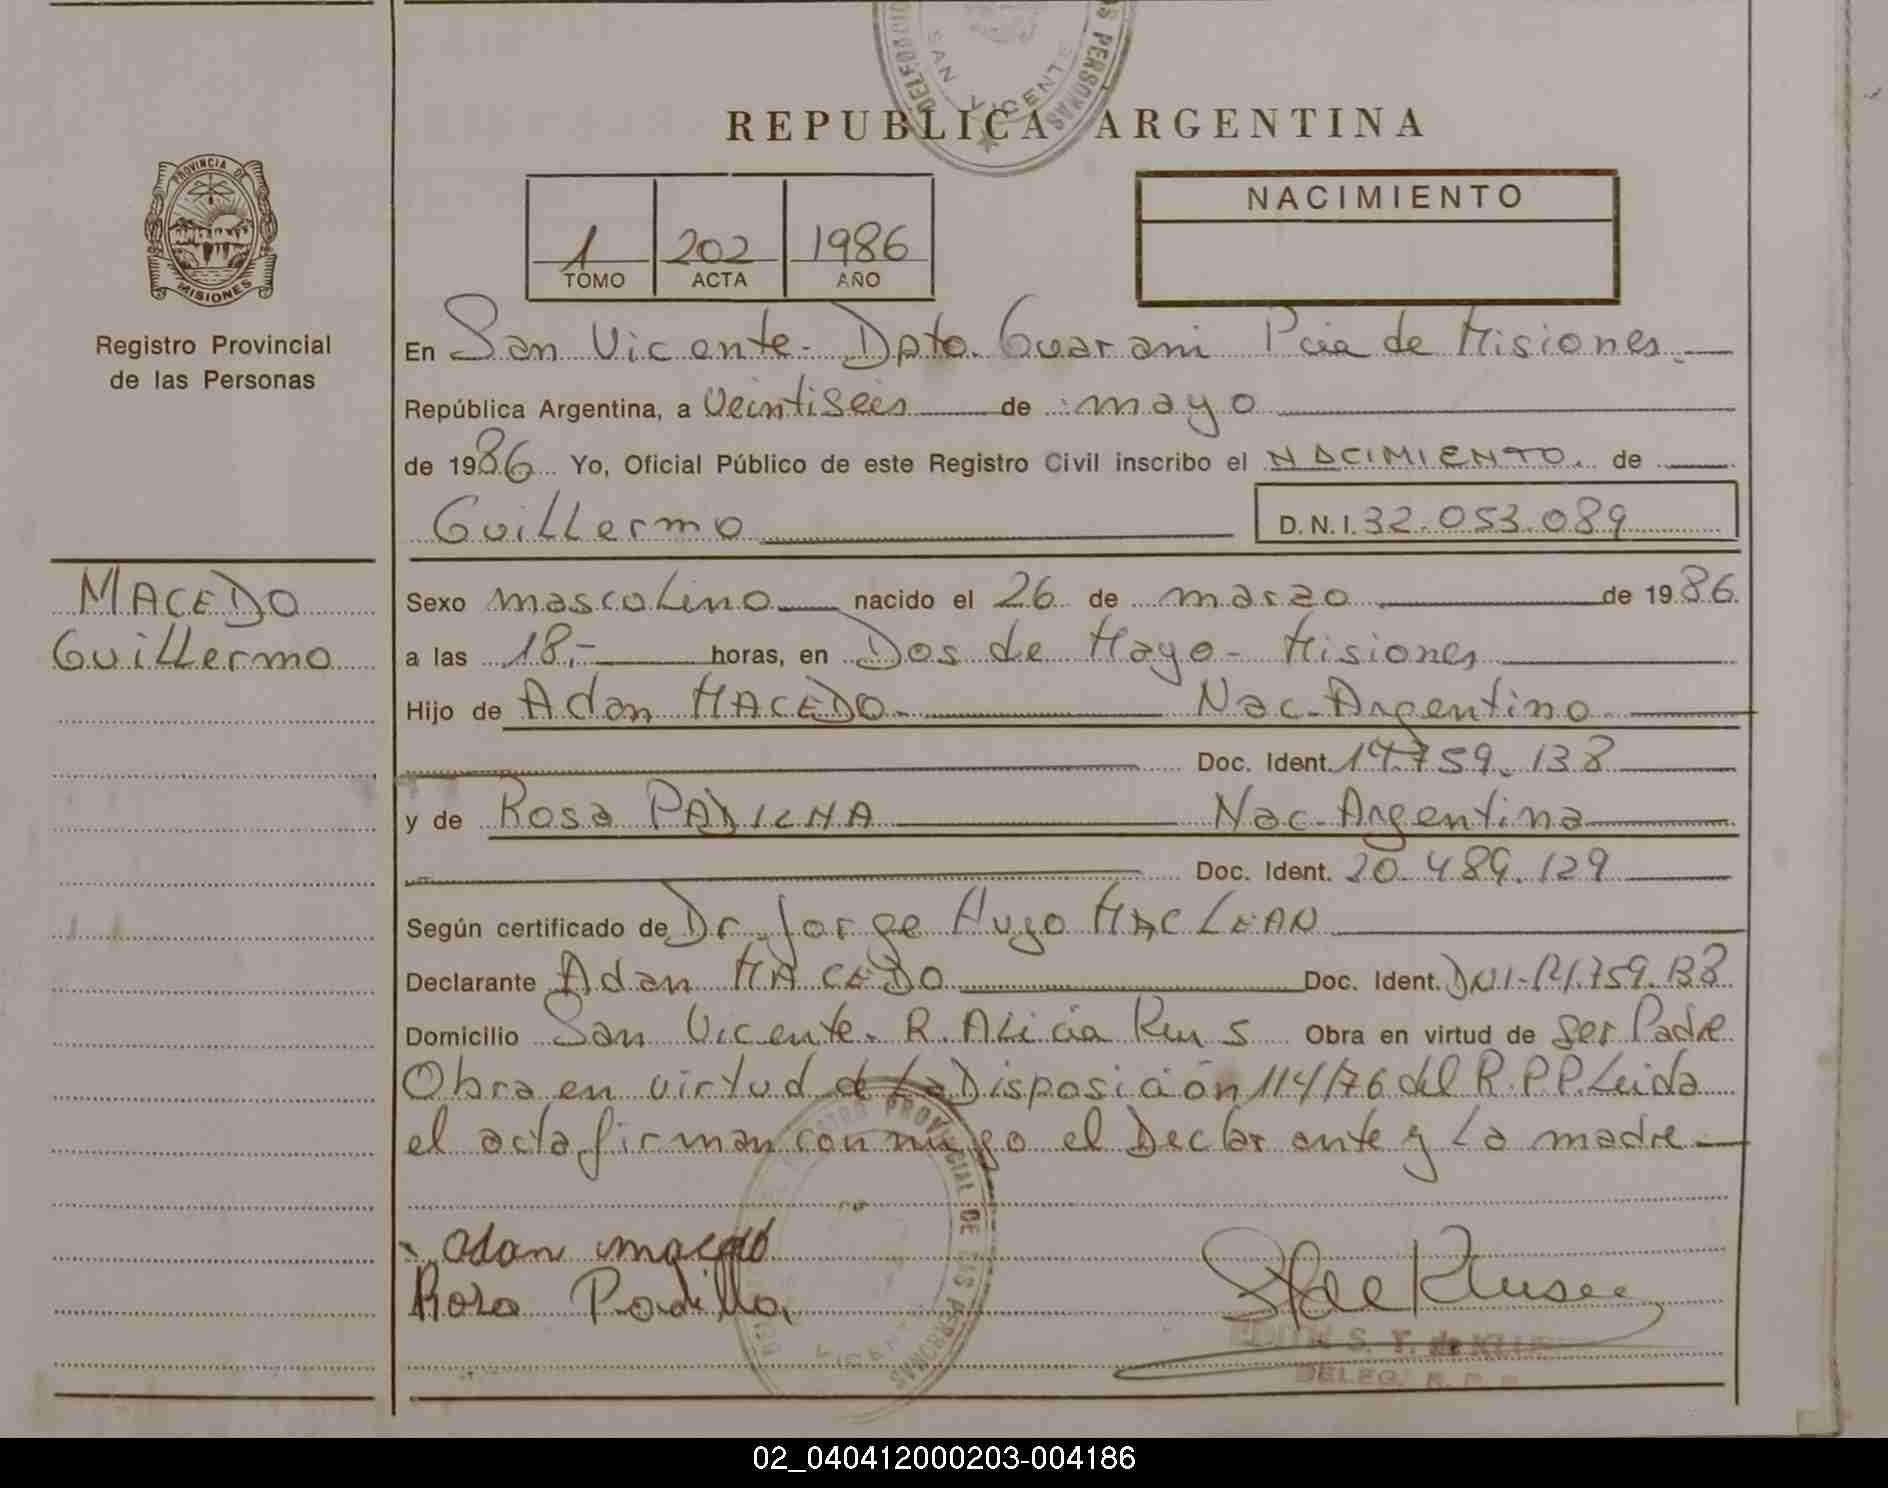 DELEGACION
SAN VICENTE
LAS PERSONAS
REPUBLICA ARGENTINA
PROVINCIA DE
MISIONES
Registro Provincial
de las Personas
1 202 1986
TOMO ACTA AÑO
NACIMIENTO
En San Vicente - Dpto. Guarani Pcia de Misiones.
República Argentina, a Veintiseis de mayo
de 1986 Yo, Oficial Público de este Registro Civil inscribo el NACIMIENTO. de
Guillermo D.N.I. 32.053.089
MACEDO
Guillermo
Sexo mascolino nacido el 26 de marzo de 1986.
a las 18,- horas, en Dos de Mayo - Misiones
Hijo de Adan MACEDO Nac. Argentino
Doc. Ident. 14.759.138
y de Rosa Nac. Argentina
Doc. Ident. 20.489.129
Según certificado de Dr. Jorge Hugo MAC LEAN
Declarante Adan MACEDO Doc. Ident. DNI-14.759.138
Domicilio San Vicente. R. ALicia Obra en virtud de ser Padre
Obra en virtud de La Disposición 114/76 del R.P.P. Leida
el acta firman con migo el Declarante y La madre
adan macedo
Rosa Padilla
PROVINCIAL DE LAS PERSONAS
EDITH S. T. de
DELEG. R. P. P.
02_040412000203-004186